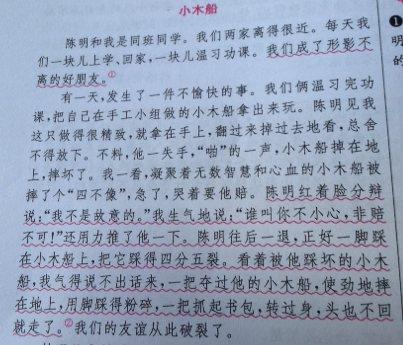 小木船
陈明和我是同班同学。我们两家离得很近。每天我
们一块儿上学、回家,一块儿温习功课。我们成了形影不
离的好朋友。①
有一天,发生了一件不愉快的事。我们俩温习完功
课,把自己在手工小组做的小木船拿出来玩。陈明见我
这只做得很精致,就拿在手上,翻过来掉过去地看,总舍
不得放下。不料,他一失手,“啪”的一声,小木船掉在地
上,摔坏了。我一看,凝聚着无数智慧和心血的小木船被
摔了个“四不像”,急了,哭着要他赔。陈明红着脸分辩
说:“我不是故意的。”我生气地说:“谁叫你不小心,非赔
不可!”还用力推了他一下。陈明往后一退,正好一脚踩
在小木船上,把它踩得四分五裂。看着被他踩坏的小木
船,我气得说不出话来,一把夺过他的小木船,使劲地摔
在地上,用脚踩得粉碎,一把抓起书包,转过身,头也不回
就走了。②我们的友谊从此破裂了。
❶
明
的